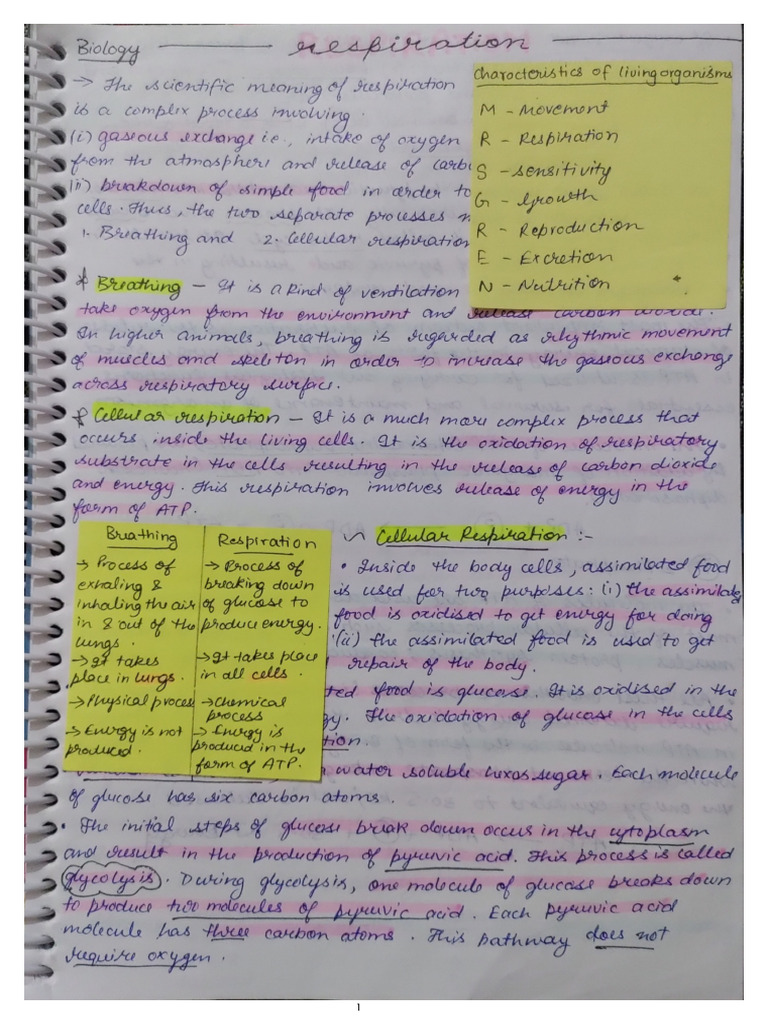 Biology
respiration
→ The scientific meaning of respiration
is a complex process involving.
(i) gaseous exchange i.e., intake of oxygen
from the atmosphere and release of carb
(ii) breakdown of simple food in order to
cells. Thus, the two separate processes
1. Breathing and 2. Cellular respiration
Charactoristics of living organisms
M - Movement
R - Respiration
S - sensitivity
G - Growth
R - Reproduction
E - Excretion
N - Nutrition
* Breathing - It is a kind of ventilation
take oxygen from the environment and release carbon dioxide.
In higher animals, breathing is regarded as rhythmic movement
of muscles and skeleton in order to increase the gaseous exchange
across respiratory surface.
* Cellular respiration - It is a much more complex process that
occurs inside the living cells. It is the oxidation of respiratory
substrate in the cells resulting in the release of carbon dioxide
and energy. This respiration involves release of energy in the
form of ATP.
Breathing
→ Process of
exhaling &
inhaling the air
in & out of the
lungs.
→ It takes
place in lungs.
→ Physical process
→ Energy is not
produced.
Respiration
→ Process of
breaking down
of glucose to
produce energy.
→ It takes place
in all cells.
→ Chemical
process
→ Energy is
produced in the
form of ATP.
Cellular Respiration :-
• Inside the body cells, assimilated food
is used for two purposes: (i) the assimilated
food is oxidised to get energy for doing
(ii) the assimilated food is used to get
repair of the body.
ted food is glucose. It is oxidised in the
gy. The oxidation of glucose in the cells
tion.
water soluble hexos sugar. Each molecule
of glucose has six carbon atoms.
• The initial steps of glucose break down occurs in the cytoplasm
and result in the production of pyruvic acid. This process is called
glycolysis. During glycolysis, one molecule of glucose breaks down
to produce two molecules of pyruvic acid. Each pyruvic acid
molecule has three carbon atoms. This pathway does not
require oxygen.
1